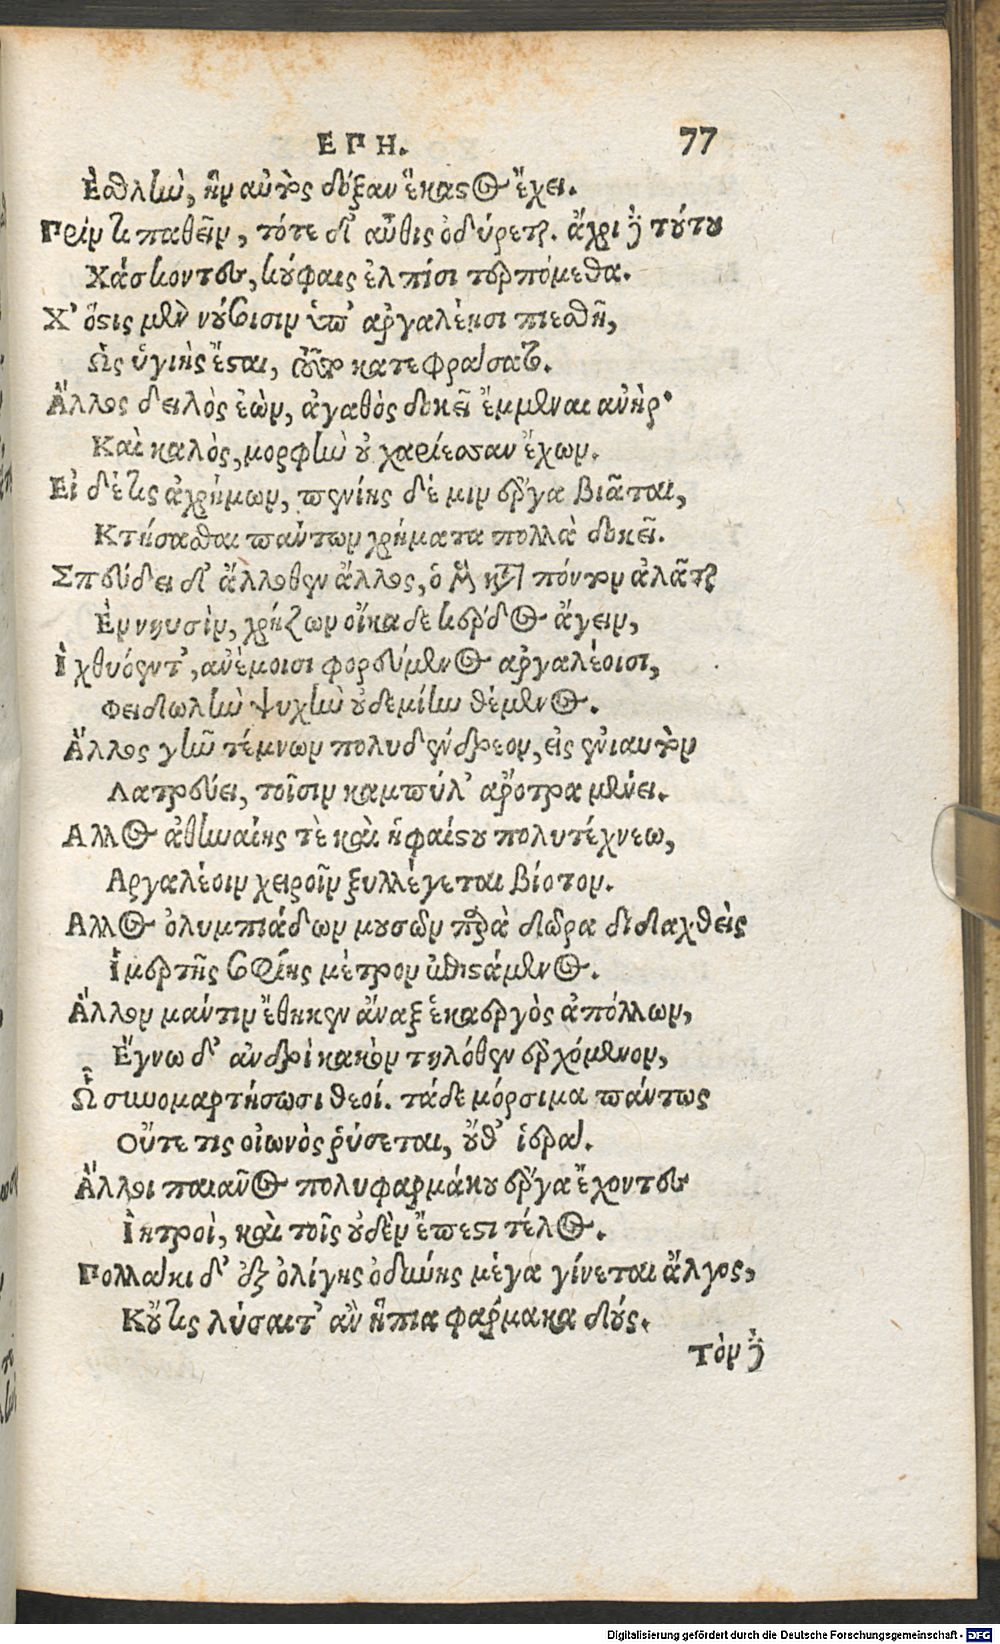 ΕΠΗ. 77
Ἐσθλὴν, ἣν αὐτὸς δόξαν ἕκαστος ἔχει.
Πρίν τι παθεῖν, τότε δ' αὖθις ὀδύρεται. ἄχρι δὲ τούτου
Χάσκοντες, κούφαις ἐλπίσι τερπόμεθα.
Χ' ὅστις μὲν νούσοισιν ὑπ' ἀργαλέησι πιεσθῇ,
Ὡς ὑγιὴς ἔσται, τοῦτο κατεφράσατο.
Ἄλλος δειλὸς ἐὼν, ἀγαθὸς δοκεῖ ἔμμεναι ἀνήρ·
Καὶ καλὸς, μορφὴν οὐ χαρίεσσαν ἔχων.
Εἰ δέ τις ἀχρήμων, πενίης δέ μιν ἔργα βιᾶται,
Κτήσασθαι πάντων χρήματα πολλὰ δοκεῖ.
Σπεύδει δ' ἄλλοθεν ἄλλος, ὁ μὲν κατὰ πόντον ἀλᾶται
Ἐν νηυσὶν, χρήζων οἴκαδε κέρδος ἄγειν,
Ἰχθυόεντ', ἀνέμοισι φορεύμενος ἀργαλέοισι,
Φειδωλὴν ψυχὴν οὐδεμίην θέμενος.
Ἄλλος γῆν τέμνων πολυδένδρεον, εἰς ἐνιαυτὸν
Λατρεύει, τοῖσιν καμπύλ' ἄροτρα μένει.
Ἄλλος ἀθηναίης τὲ καὶ ἡφαίστου πολυτέχνεω,
Ἀργαλέοιν χειροῖν ξυλλέγεται βίοτον.
Ἄλλος ὀλυμπιάδων μουσῶν παρὰ δῶρα διδαχθεὶς
Ἱμερτῆς σοφίης μέτρον ἐπιστάμενος.
Ἄλλον μάντιν ἔθηκεν ἄναξ ἑκαεργὸς ἀπόλλων,
Ἔγνω δ' ἀνδρὶ κακὸν τηλόθεν ἐρχόμενον,
ᾯ συνομαρτήσωσι θεοί. τάδε μόρσιμα πάντως
Οὔτε τις οἰωνὸς ῥύσεται, οὔθ' ἱερά.
Ἄλλοι παιῶνος πολυφαρμάκου ἔργα ἔχοντες
Ἰητροὶ, καὶ τοῖς οὐδὲν ἔπεστι τέλος.
Πολλάκι δ' ἐξ ὀλίγης ὀδύνης μέγα γίνεται ἄλγος,
Κοὔτις λύσαιτ' ἂν ἤπια φάρμακα δούς.
Τὸν δὲ
Digitalisierung gefördert durch die Deutsche Forschungsgemeinschaft - DFG